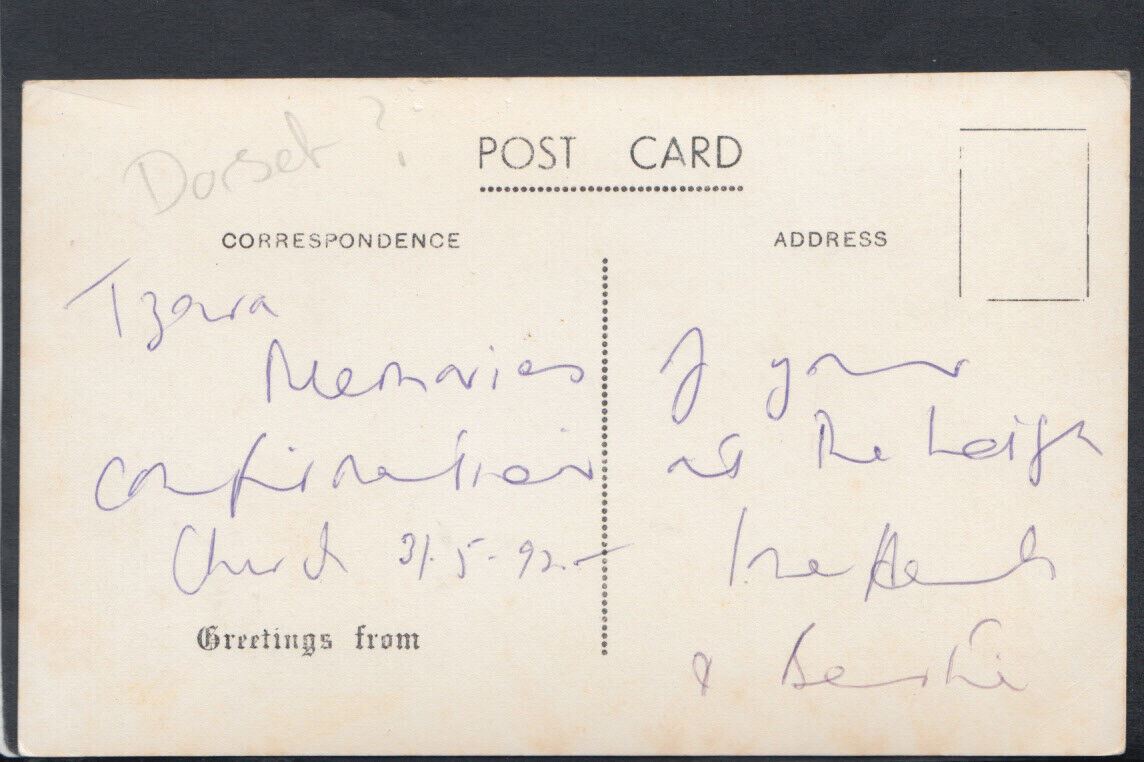 Dorset ?
POST CARD
CORRESPONDENCE
ADDRESS
Memories of your
confirmation at The Leigh
Church 31-5-92.-
&
Greetings from